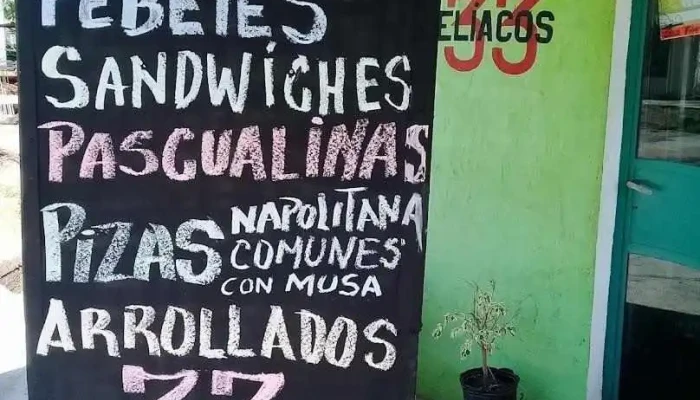 PEBETES
SANDWICHES
PASCUALINAS
PIZAS NAPOLITANA
COMUNES
CON MUSA
ARROLLADOS
77
33
ELÍACOS